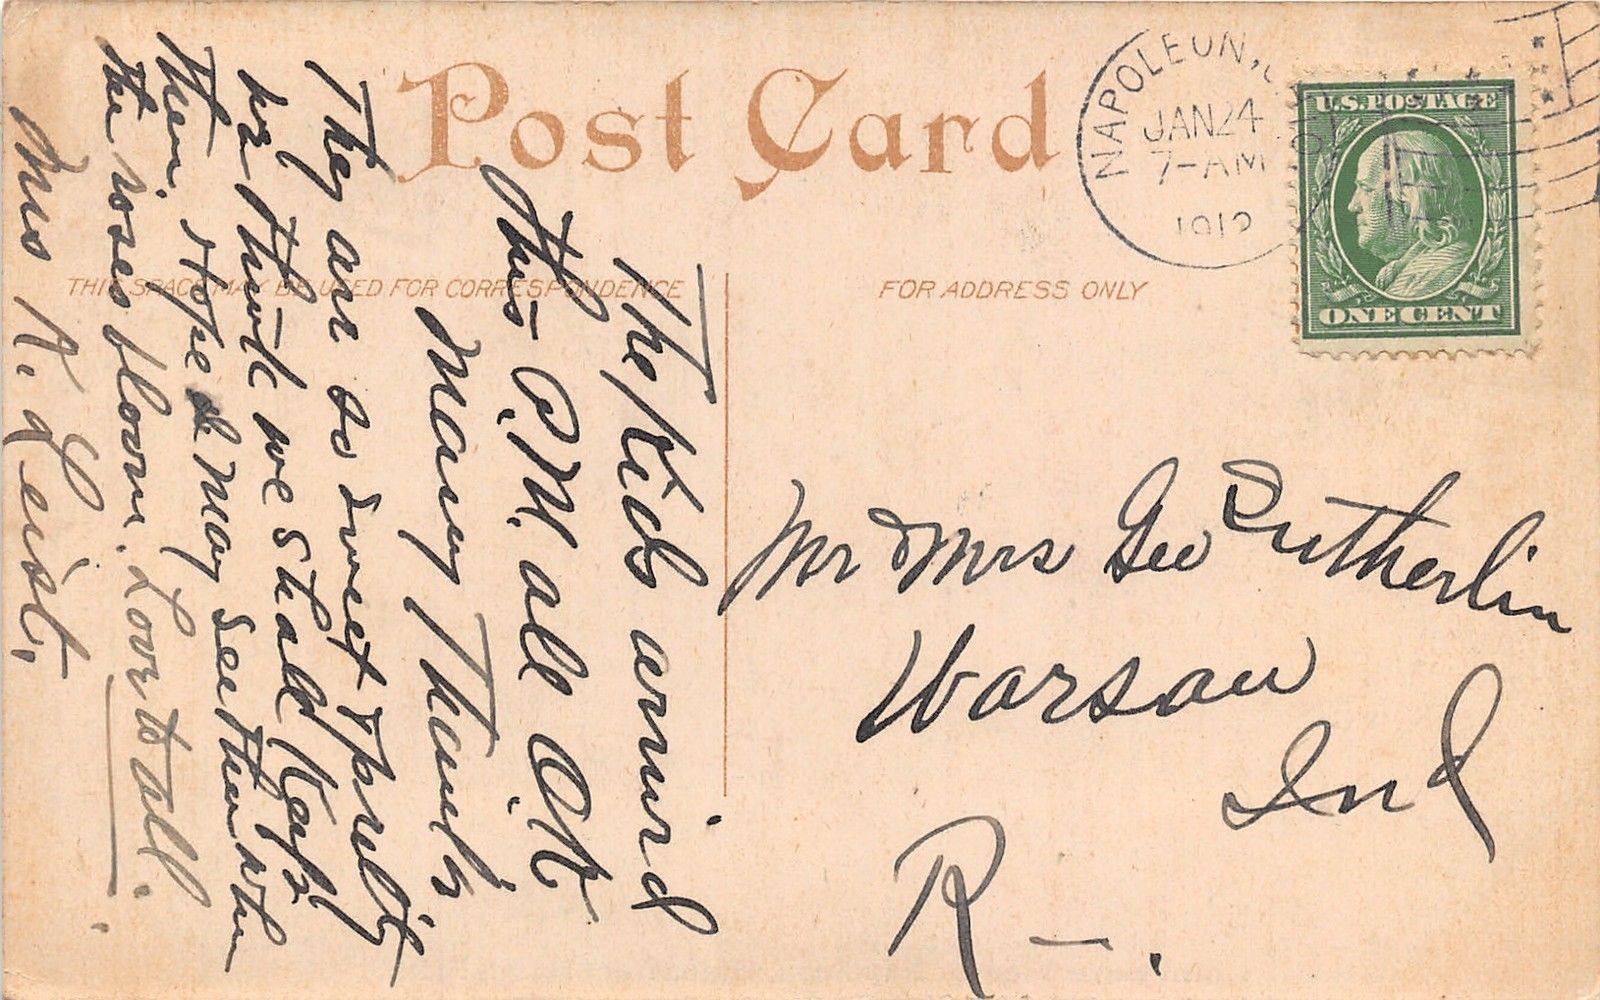 Post Card
THIS SPACE MAY BE USED FOR CORRESPONDENCE
FOR ADDRESS ONLY
NAPOLEON, O
JAN 24
7-AM
1912
U.S. POSTAGE
ONE CENT
The Kids arrived
this P.M. all O.K
Many Thanks.
They are so sweet & pretty
we think we shall keep
them. Hope & May see them when
the roses bloom. Love to all.
Mrs A. Leist.
Mr & Mrs Geo Rutherlin
Warsaw
Ind
R—.